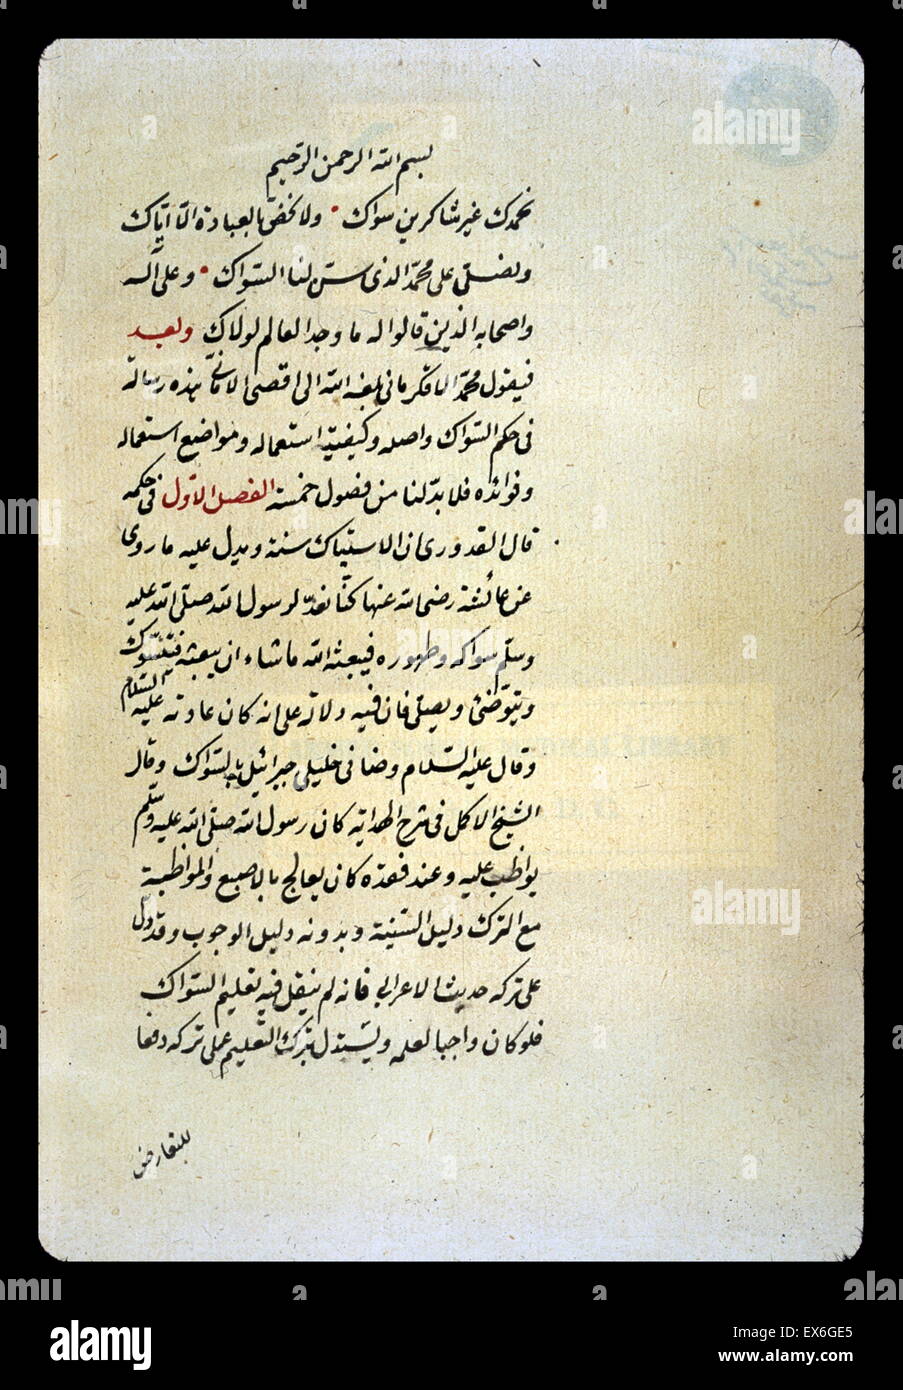 بسم الله الرحمن الرحيم
نحمدك غير شاكرين سواك ولا نخص بالعبادة الا اياك
ونصلى على محمد الذى سن لنا السواك وعلى آله
واصحابه الذين قالوا له ما وجد العالم لولاك وبعد
فيقول محمد الاقكرمانى بلغه الله الى اقصى الامانى هذه رسالة
فى حكم السواك واصله وكيفية استعماله ومواضع استعماله
وفوائده فلا بد لنا من فصول خمسة الفصل الاول فى حكمه
قال القدورى ان الاستياك سنة ويدل عليه ما روى
عن عائشة رضى الله عنها كنا نعد لرسول الله صلى الله عليه
وسلم سواكه وطهوره فيبعثه الله ما شاء ان يبعثه فيتسوك
ويتوضئ ويصلى فان فيه دلالة على انه كان عادته عليه السلام
وقال عليه السلام وصانى خليلى جبرائيل بالسواك وقال
الشيخ الاكمل فى شرح الهداية كان رسول الله صلى الله عليه وسلم
يواظب عليه وعند فقده كان يعالج بالاصبع والمواظبة
مع الترك دليل السنية وبدونه دليل الوجوب وقد دل
على تركه حديث الاعرابى فانه لم ينقل فيه تعليم السواك
فلو كان واجبا لعلمه ويستدل بترك التعليم على تركه دفعا
للتعارض
alamy
EX6GE5
www.alamy.com